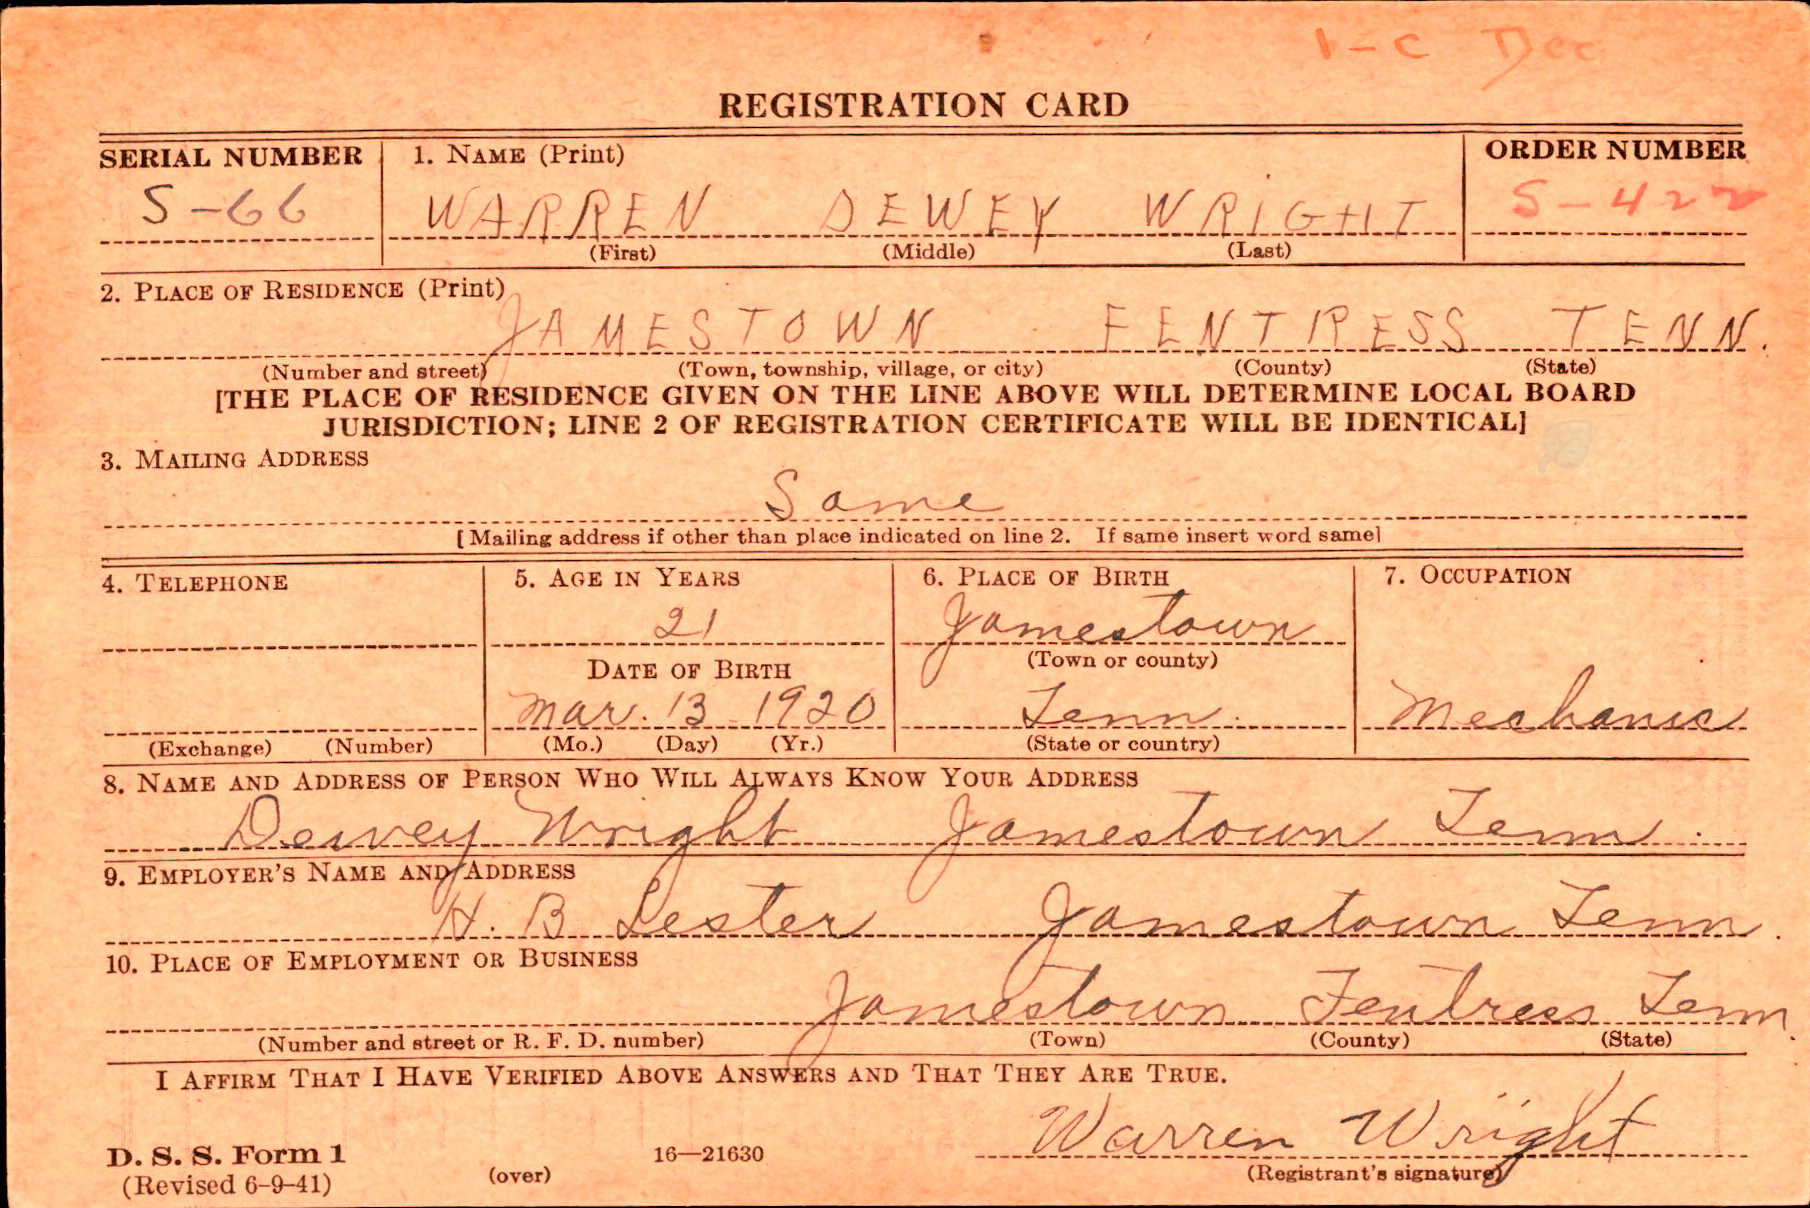 1-C Dec
REGISTRATION CARD
SERIAL NUMBER 1. NAME (Print) ORDER NUMBER
S-66 WARREN DEWEY WRIGHT S-422
(First) (Middle) (Last)
2. PLACE OF RESIDENCE (Print)
JAMESTOWN FENTRESS TENN.
(Number and street) (Town, township, village, or city) (County) (State)
[THE PLACE OF RESIDENCE GIVEN ON THE LINE ABOVE WILL DETERMINE LOCAL BOARD
JURISDICTION; LINE 2 OF REGISTRATION CERTIFICATE WILL BE IDENTICAL]
3. MAILING ADDRESS
Same
[Mailing address if other than place indicated on line 2. If same insert word same]
4. TELEPHONE 5. AGE IN YEARS 6. PLACE OF BIRTH 7. OCCUPATION
21 Jamestown
DATE OF BIRTH (Town or county)
Mar. 13 1920 Tenn. Mechanic
(Exchange) (Number) (Mo.) (Day) (Yr.) (State or country)
8. NAME AND ADDRESS OF PERSON WHO WILL ALWAYS KNOW YOUR ADDRESS
Dewey Wright Jamestown Tenn.
9. EMPLOYER'S NAME AND ADDRESS
H. B Lester Jamestown Tenn.
10. PLACE OF EMPLOYMENT OR BUSINESS
Jamestown Fentress Tenn.
(Number and street or R. F. D. number) (Town) (County) (State)
I AFFIRM THAT I HAVE VERIFIED ABOVE ANSWERS AND THAT THEY ARE TRUE.
Warren Wright
D. S. S. Form 1 16—21630
(Revised 6-9-41) (over) (Registrant's signature)